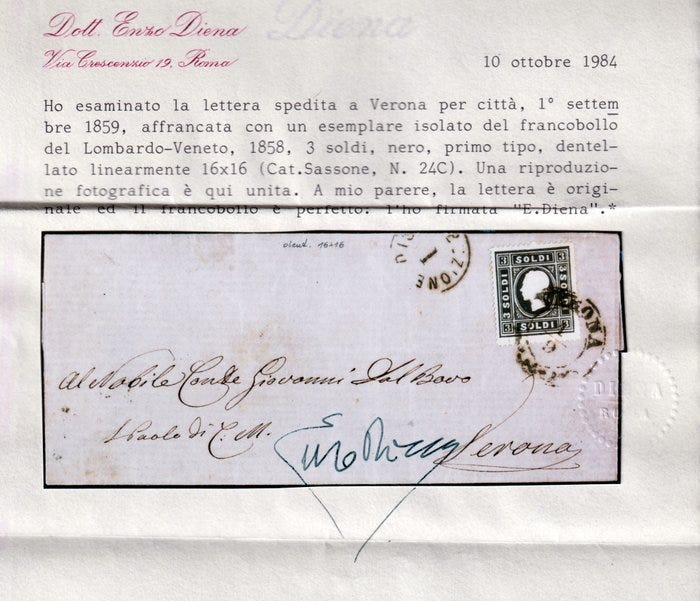 Diena
Dott. Enzo Diena
Via Crescenzio 19, Roma
10 ottobre 1984
Ho esaminato la lettera spedita a Verona per città, 1° settem
bre 1859, affrancata con un esemplare isolato del francobollo
del Lombardo-Veneto, 1858, 3 soldi, nero, primo tipo, dentel-
lato linearmente 16x16 (Cat.Sassone, N. 24C). Una riproduzio-
ne fotografica è qui unita. A mio parere, la lettera è origi-
nale ed il francobollo è perfetto: l'ho firmata "E.Diena".*
dent. 16x16
DIS
UZIONE
1
3 SOLDI 3
3 SOLDI
3 SOLDI
3 SOLDI 3
VERONA
Al Nobile Conte Giovanni Dal Bovo
S Paolo di C. M.
Verona
Enzo Diena
DIENA
ROMA